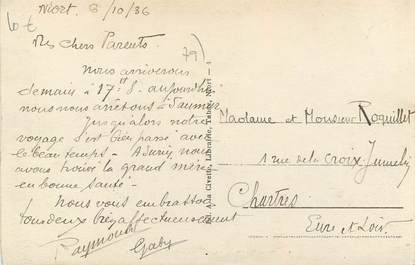 Niort 6/10/36
6 €
79)
Mes chers Parents.
Nous arriverons
demain à 17h8. aujourd'hui
nous nous arrêtons à Saumur
Jusqu'alors notre
voyage s'est bien passé avec
le beau temps - A nous
avons trouvé la grand mère
en bonne santé -
Nous vous embrassons
tous deux bien affectueusement
Raymonde
Gaby
A la Civette, Librairie, Niort - 1
Madame et Monsieur Roquillet
1 rue de la Croix Jumelin
Chartres
Eure et Loir.